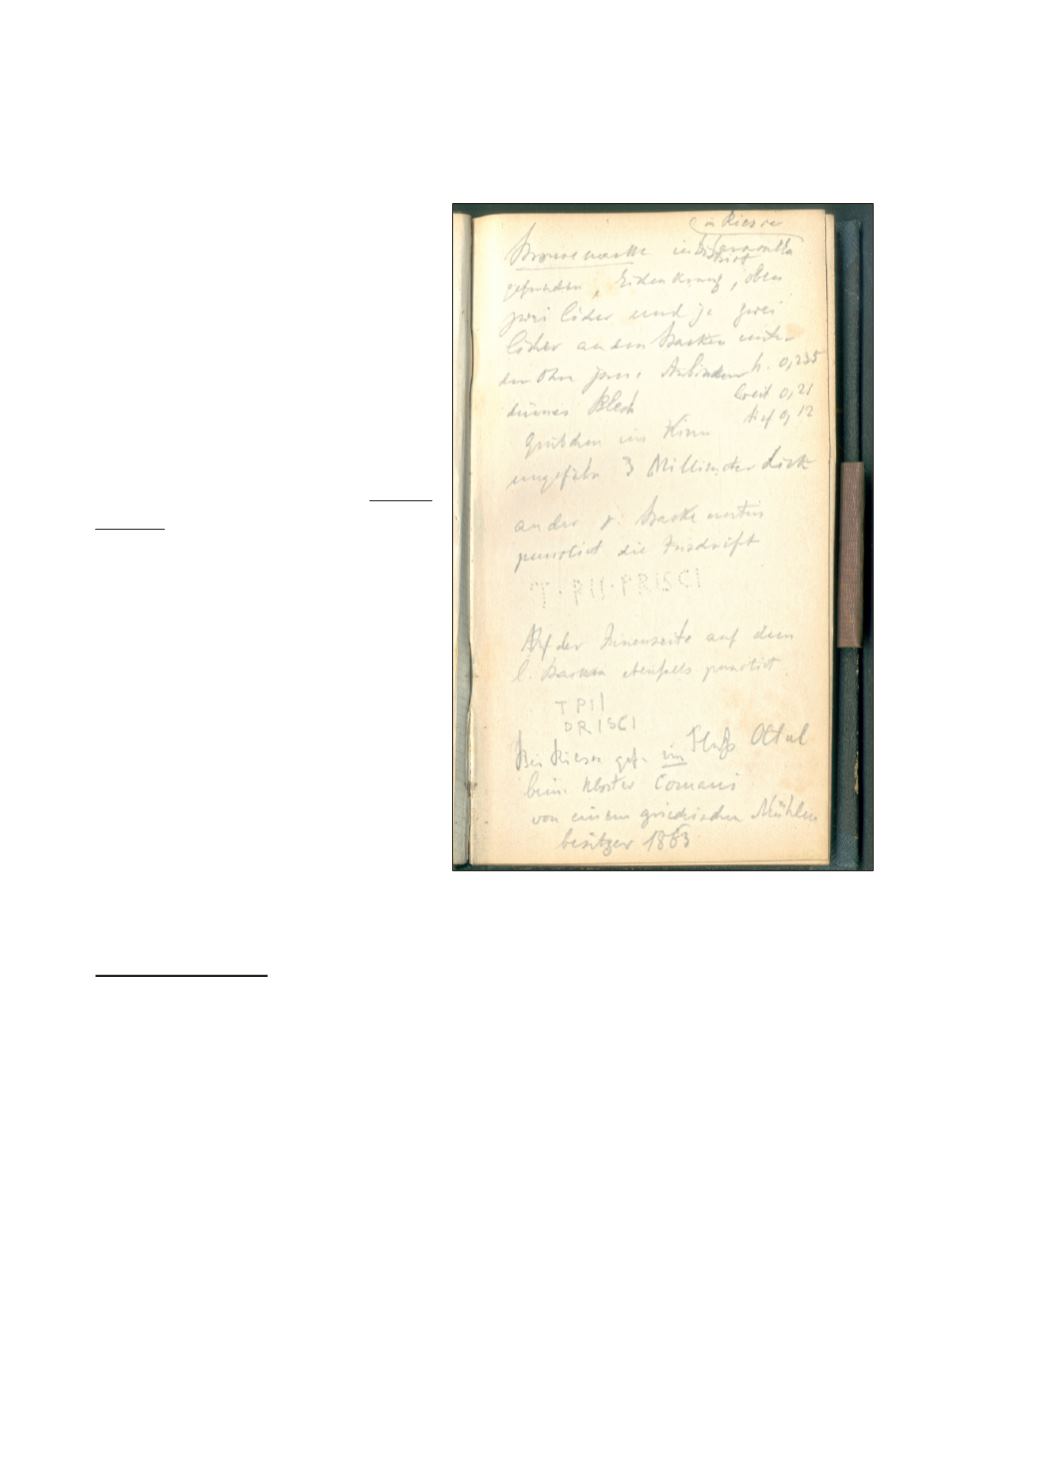 in Riesce
Bronzemaske im District
gefunden, Eichenkranz, oben
zwei Löcher und je zwei
Löcher an den Backen unter
den Ohren zum Anbinden h. 0,235
dünnes Blech breit 0,21
tief 0,12
Grübchen im Kinn
ungefähr 3 Millimeter dick
an der r. Backe
punctirt die Inschrift
T · PII · PRISCI
Auf der Innenseite auf dem
l. Backen ebenfalls punctirt.
T PII
PRISCI
Bei Riesce gef. im Fluß Oltul
beim Kloster Comani
von einem griechischen Mühlen
besitzer 1883